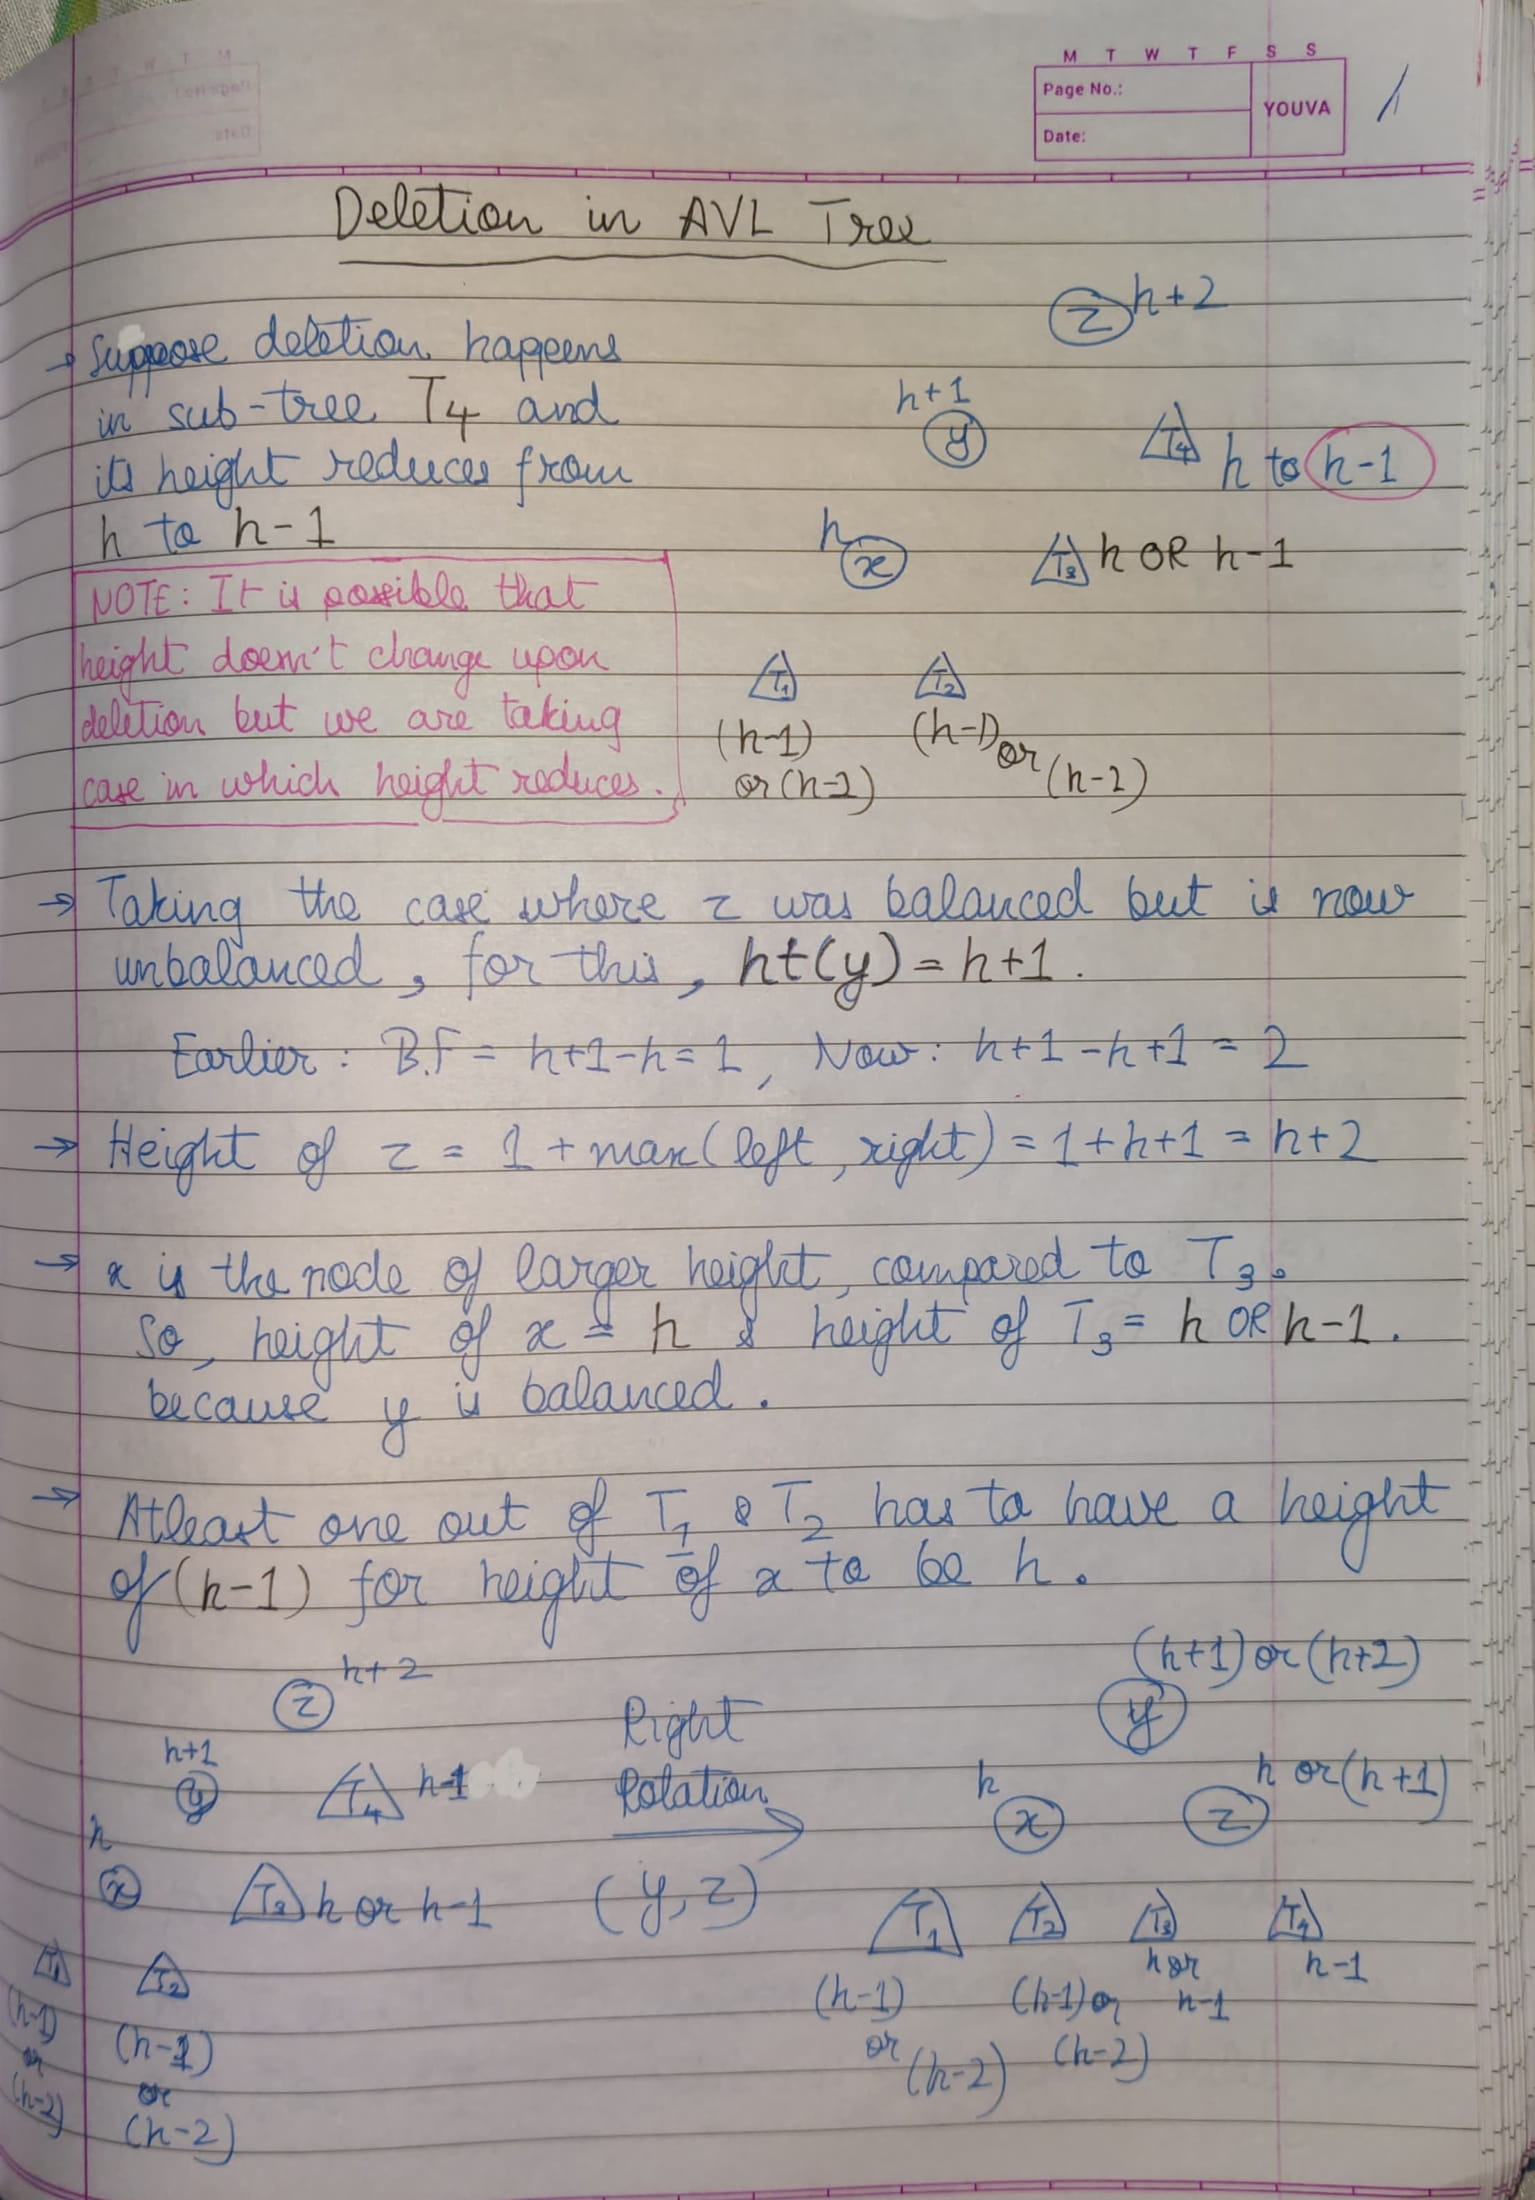 M T W T F S S
Page No.:
YOUVA
Date:
1
Deletion in AVL Tree
→ Suppose deletion happens
in sub-tree T4 and
its height reduces from
h to h-1
NOTE: It is possible that
height doesn't change upon
deletion but we are taking
case in which height reduces.
z h+2
h+1
y
T4 h to h-1
h
x
T3 h OR h-1
T1 T2
(h-1) (h-1) or
or (h-2) (h-2)
→ Taking the case where z was balanced but is now
unbalanced, for this, ht(y) = h+1.
Earlier: B.F = h+1-h=1, Now: h+1-h+1 = 2
→ Height of z = 1 + max(left, right) = 1+h+1 = h+2
→ x is the node of larger height, compared to T3.
So, height of x = h & height of T3 = h OR h-1.
because y is balanced.
→ Atleast one out of T1 & T2 has to have a height
of (h-1) for height of x to be h.
z h+2
h+1
y
T4 h-1
h
x
T3 h or h-1
T1 T2
(h-1) (h-1)
or or
(h-2) (h-2)
Right
Rotation
(y,z)
(h+1) or (h+2)
y
h h or (h+1)
x z
T1 T2 T3 T4
(h-1) (h-1) or h or h-1
or (h-2) (h-2) h-1